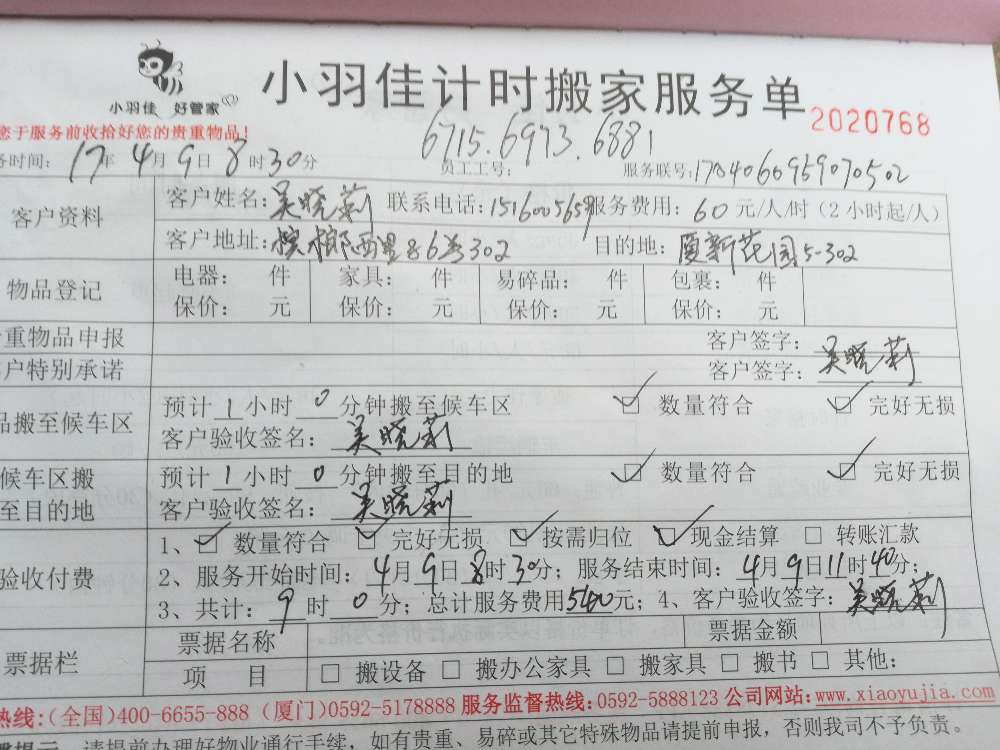 小羽佳 好管家
小羽佳计时搬家服务单
2020768
您于服务前收拾好您的贵重物品！
6715.6973.6881
务时间：17年4月9日8时30分 员工工号： 服务联号：
客户资料
客户姓名：吴晓莉 联系电话： 服务费用：60元/人/时（2小时起/人）
客户地址：槟榔西里86号302 目的地：厦新花园5-302
物品登记
电器： 件 家具： 件 易碎品： 件 包裹： 件
保价： 元 保价： 元 保价： 元 保价： 元
重物品申报 客户签字：
户特别承诺 客户签字：吴晓莉
品搬至候车区
预计1小时0分钟搬至候车区 ☑ 数量符合 ☑ 完好无损
客户验收签名：吴晓莉
候车区搬至目的地
预计1小时0分钟搬至目的地 ☑ 数量符合 ☑ 完好无损
客户验收签名：吴晓莉
验收付费
1、☑ 数量符合 ☑ 完好无损 ☑ 按需归位 ☑ 现金结算 □ 转账汇款
2、服务开始时间：4月9日8时30分；服务结束时间：4月9日11时40分；
3、共计：9时0分；总计服务费用540元；4、客户验收签字：吴晓莉
票据栏
票据名称 票据金额
项 目 □ 搬设备 □ 搬办公家具 □ 搬家具 □ 搬书 □ 其他：
热线：（全国）400-6655-888（厦门）0592-5178888 服务监督热线：0592-5888123 公司网站：www.xiaoyujia.com
提示 请提前办理好物业通行手续，如有贵重、易碎或其它特殊物品请提前申报，否则我司不予负责。